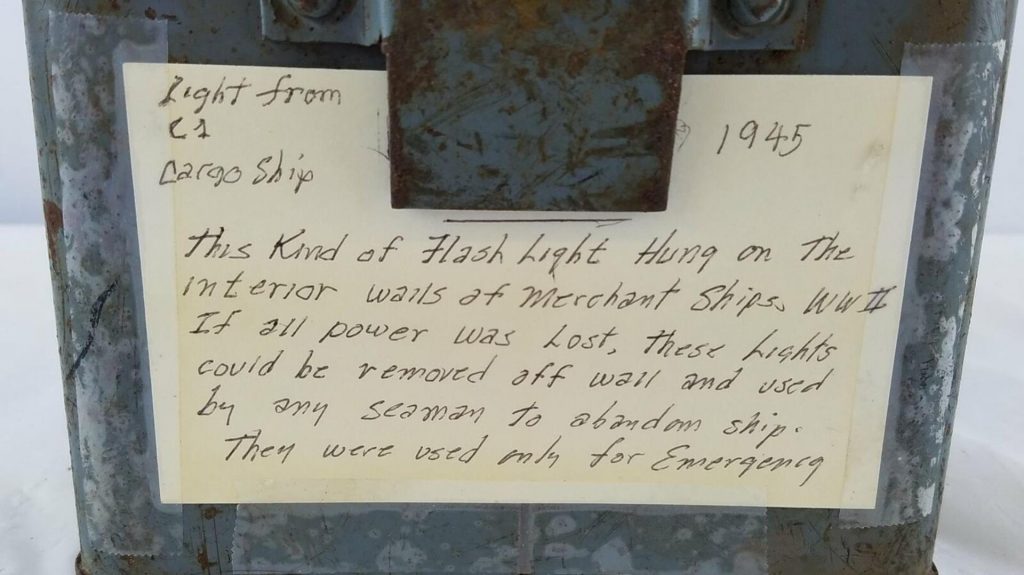 Light from
C1
Cargo Ship
1945
This Kind of Flash Light Hung on The
interior walls of Merchant Ships. WW II
If all power was Lost, these Lights
could be removed off wall and used
by any seaman to abandon ship.
They were used only for Emergency